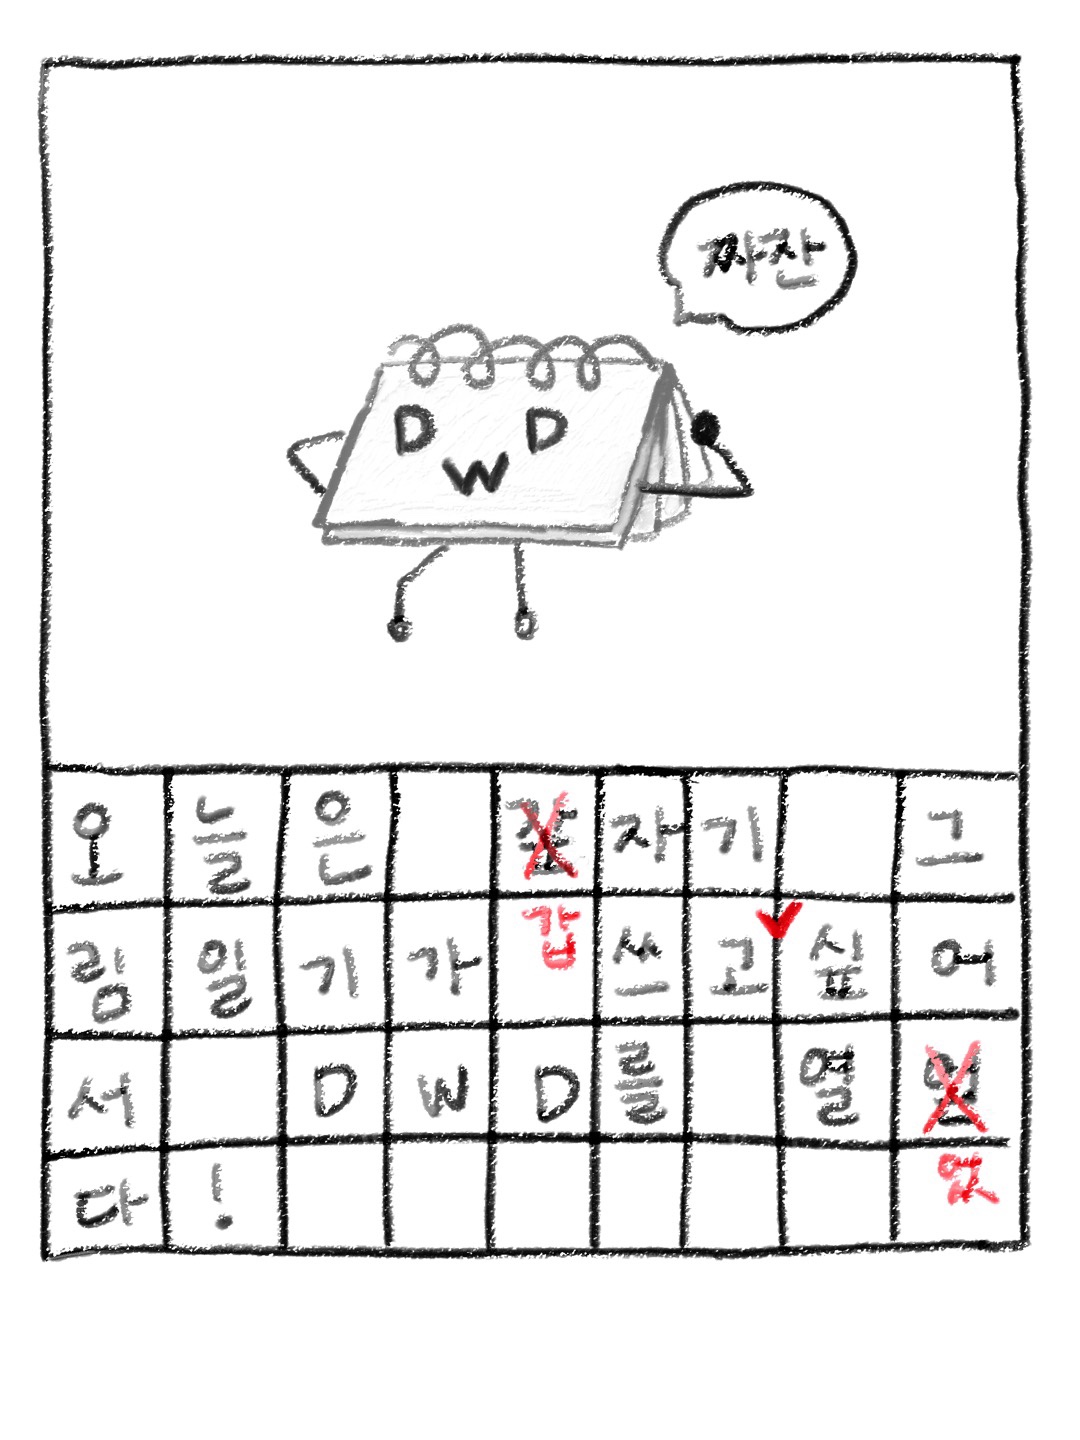 짜잔
D D
W
오늘은 갚자기 그
갑
림일기가 쓰고싶어
서 DWD를 열
었
다!